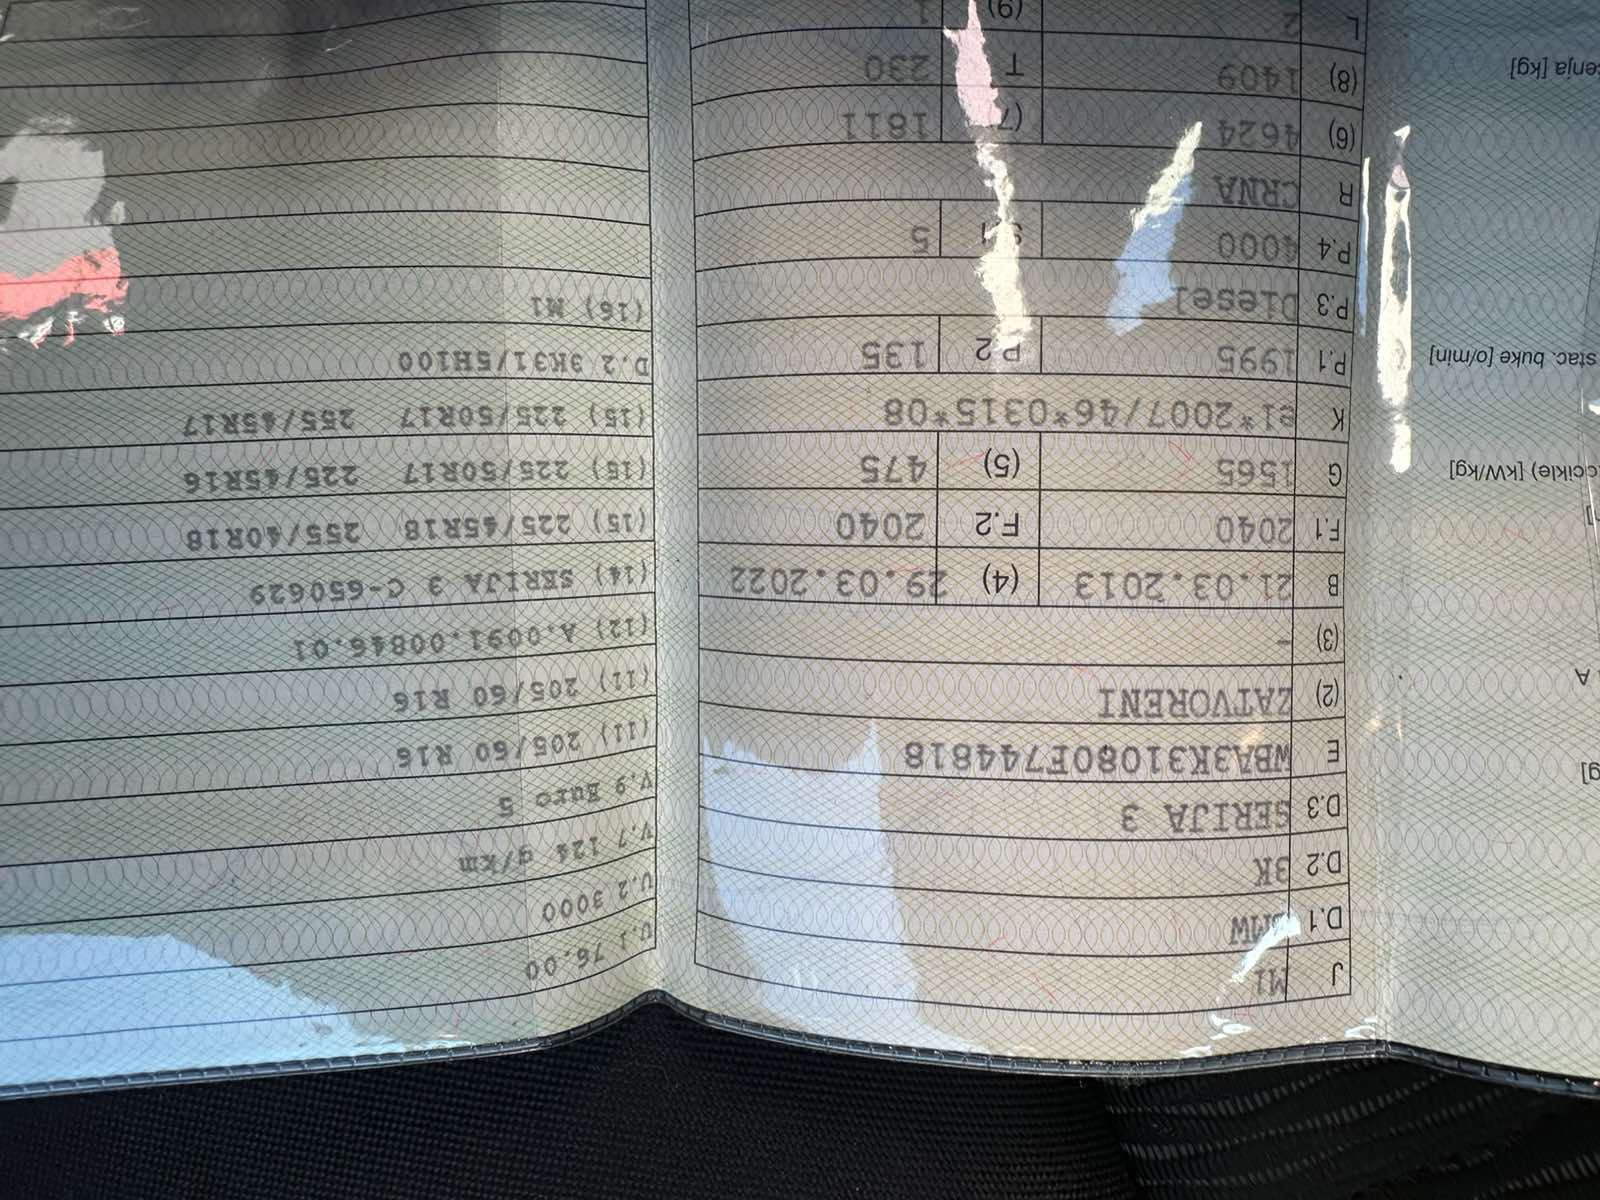 J M1
D.1 BMW
D.2 3K
D.3 SERIJA 3
E WBA3K31080F744818
(2) ZATVORENI
(3) -
B 21.03.2013 (4) 29.03.2022
F.1 2040 F.2 2040
G 1565 (5) 475
K e1*2007/46*0315*08
P.1 1995 P.2 135
P.3 Diesel
P.4 4000 5
R CRNA
(6) 4624 (7) 1811
(8) 1409 T 230
L 2 (9) 1
U.1 76.00
U.2 3000
V.7 124 g/km
V.9 Euro 5
(11) 205/60 R16
(11) 205/60 R16
(12) A.0091.00846.01
(14) SERIJA 3 C-650629
(15) 225/45R18 255/40R18
(15) 225/50R17 225/45R16
(15) 225/50R17 255/45R17
D.2 3K31/5H100
(16) M1
A
stac. buke [o/min]
[kW/kg]
[kg]